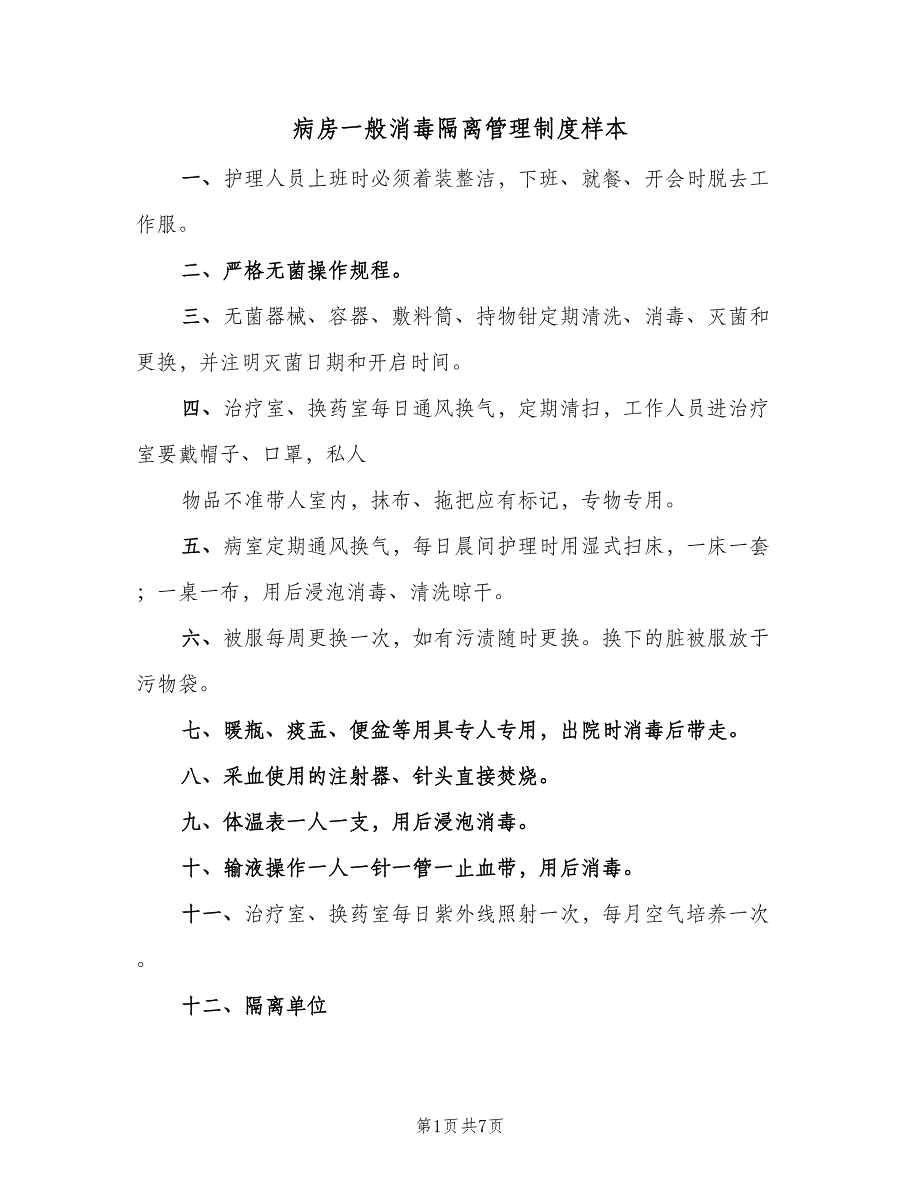 病房一般消毒隔离管理制度样本
一、护理人员上班时必须着装整洁，下班、就餐、开会时脱去工
作服。
二、严格无菌操作规程。
三、无菌器械、容器、敷料筒、持物钳定期清洗、消毒、灭菌和
更换，并注明灭菌日期和开启时间。
四、治疗室、换药室每日通风换气，定期清扫，工作人员进治疗
室要戴帽子、口罩，私人
物品不准带人室内，抹布、拖把应有标记，专物专用。
五、病室定期通风换气，每日晨间护理时用湿式扫床，一床一套
；一桌一布，用后浸泡消毒、清洗晾干。
六、被服每周更换一次，如有污渍随时更换。换下的脏被服放于
污物袋。
七、暖瓶、痰盂、便盆等用具专人专用，出院时消毒后带走。
八、采血使用的注射器、针头直接焚烧。
九、体温表一人一支，用后浸泡消毒。
十、输液操作一人一针一管一止血带，用后消毒。
十一、治疗室、换药室每日紫外线照射一次，每月空气培养一次
。
十二、隔离单位
第1页共7页